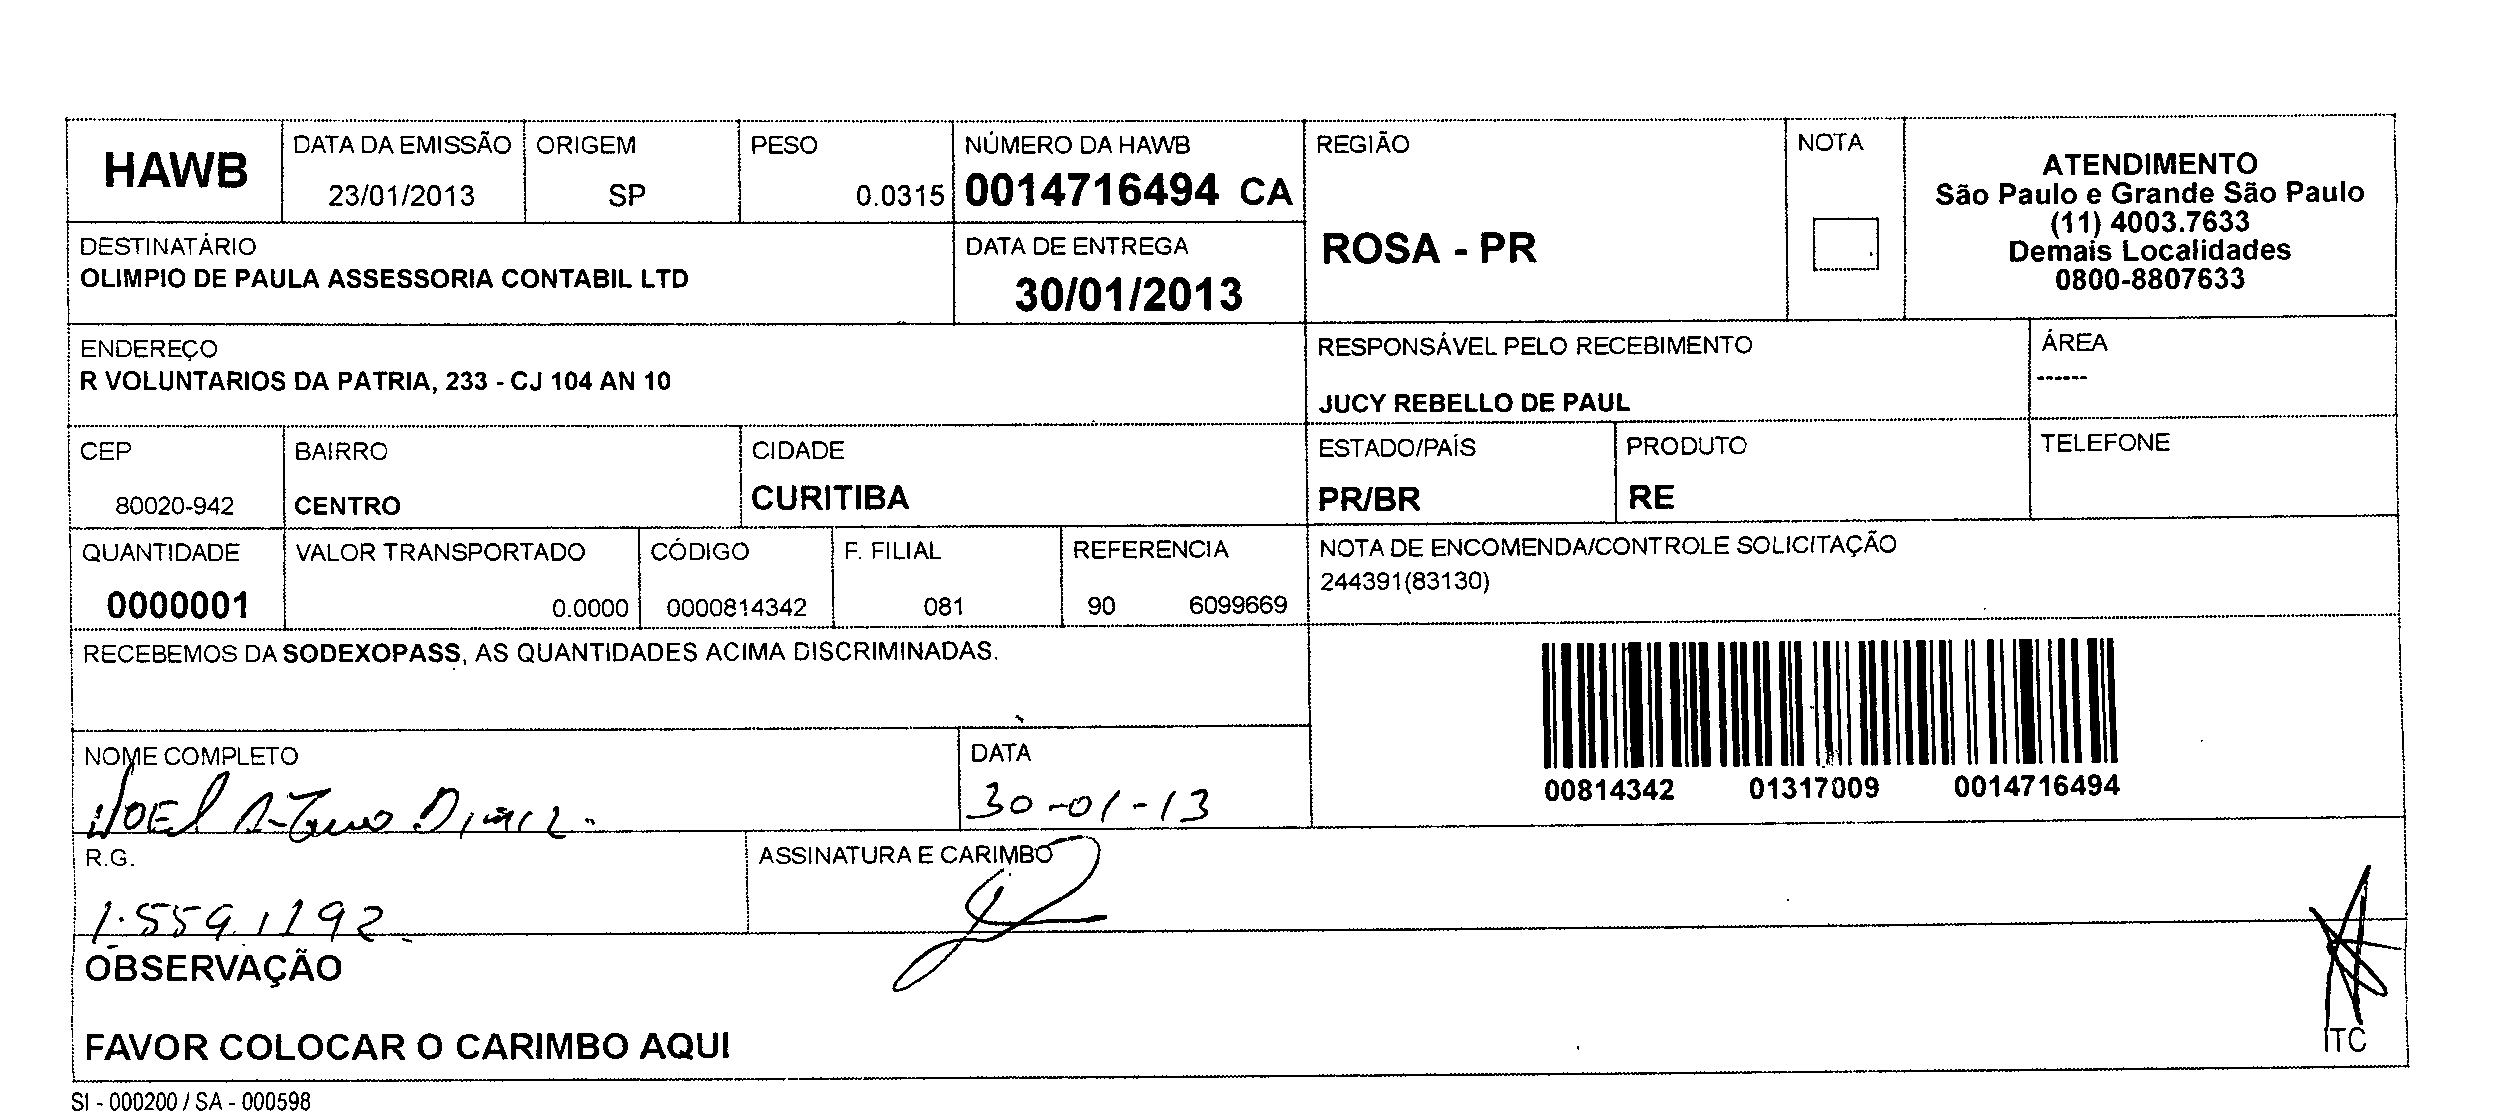 HAWB
DATA DA EMISSÃO
23/01/2013
ORIGEM
SP
PESO
0.0315
NÚMERO DA HAWB
0014716494 CA
REGIÃO
ROSA - PR
NOTA
ATENDIMENTO
São Paulo e Grande São Paulo
(11) 4003.7633
Demais Localidades
0800-8807633
DESTINATÁRIO
OLIMPIO DE PAULA ASSESSORIA CONTABIL LTD
DATA DE ENTREGA
30/01/2013
ENDEREÇO
R VOLUNTARIOS DA PATRIA, 233 - CJ 104 AN 10
RESPONSÁVEL PELO RECEBIMENTO
JUCY REBELLO DE PAUL
ÁREA
------
CEP
80020-942
BAIRRO
CENTRO
CIDADE
CURITIBA
ESTADO/PAÍS
PR/BR
PRODUTO
RE
TELEFONE
QUANTIDADE
0000001
VALOR TRANSPORTADO
0.0000
CÓDIGO
0000814342
F. FILIAL
081
REFERENCIA
90 6099669
NOTA DE ENCOMENDA/CONTROLE SOLICITAÇÃO
244391(83130)
RECEBEMOS DA SODEXOPASS, AS QUANTIDADES ACIMA DISCRIMINADAS.
00814342 01317009 0014716494
NOME COMPLETO
NOEL
DATA
30-01-13
R.G.
1.559.1192.
ASSINATURA E CARIMBO
OBSERVAÇÃO
FAVOR COLOCAR O CARIMBO AQUI
ITC
SI - 000200 / SA - 000598